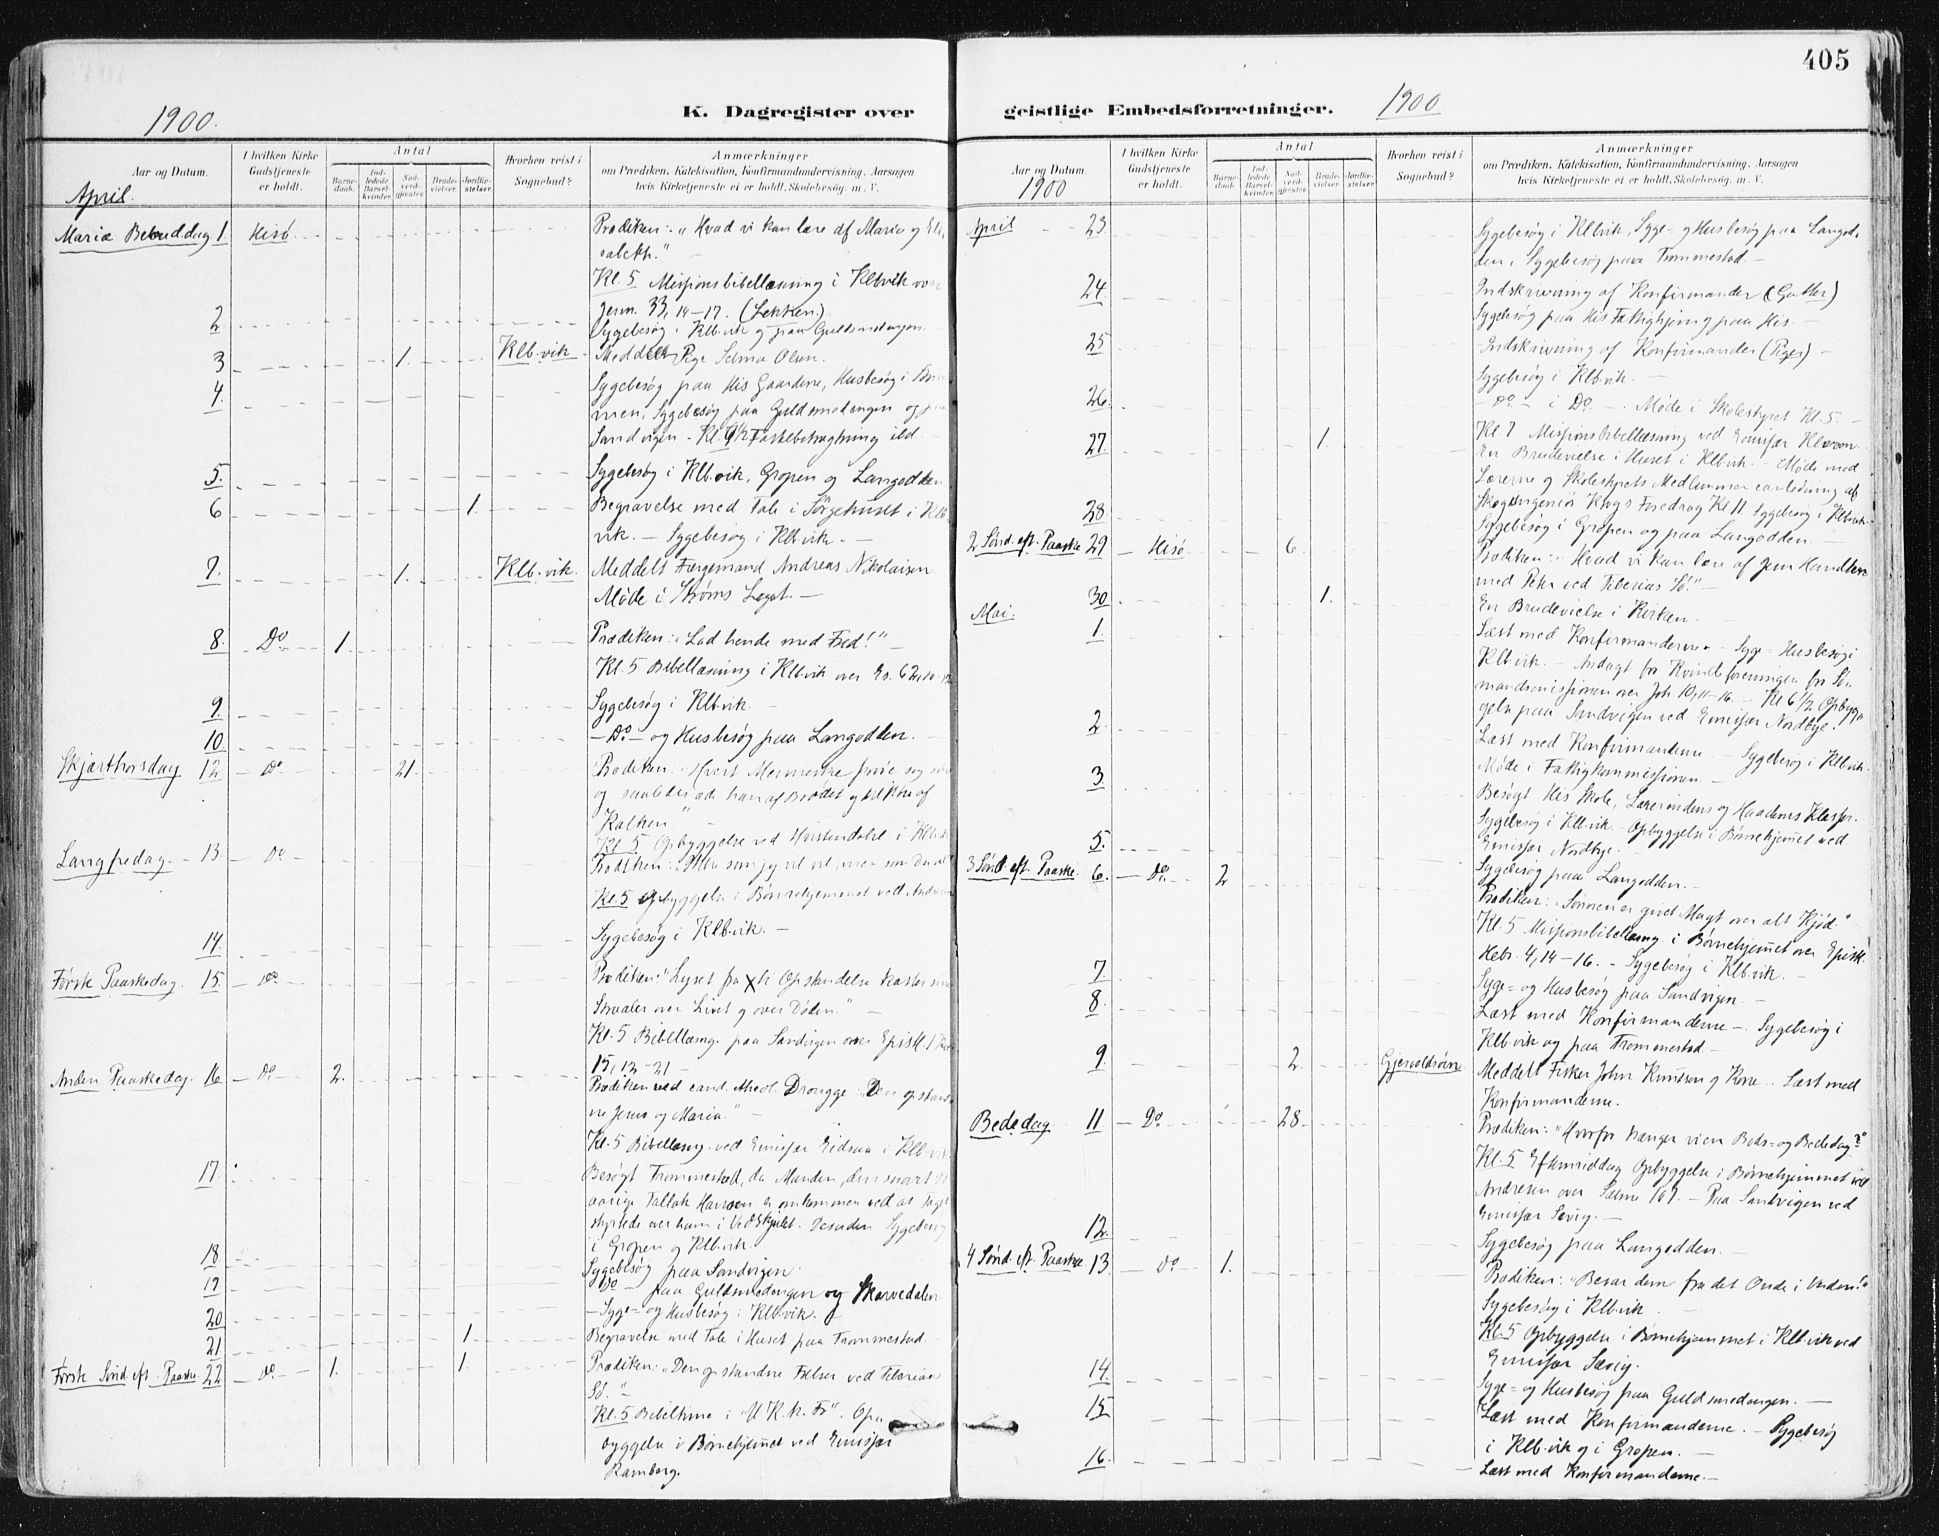 405
1900.
K. Dagregister over
geistlige Embedsforretninger.
1900
Aar og Datum.
I hvilken Kirke Gudstjeneste er holdt.
Antal
Barnedaab.
Indledede Barselkvinder.
Nadverdgjester.
Brudevielser.
Jordfæstelser.
Hvorhen reist i Sognebud?
Anmærkninger
om Prædiken, Katekisation, Konfirmandundervisning, Aarsagen
hvis Kirketjeneste ei er holdt, Skolebesøg m. V.
April.
Mariæ Bebuddag 1. Hisø Prædiken: "Hvad vi kan lære af Maria og Eli-
sabeth."
Kl. 5 Missionsbibellæsning i Klbvik over
Jerm. 33, 14-17. (Lekken)
2 Sygebesøg i Klb.vik og paa Guldsmedengen.
3 1. Klb.vik. Meddelt Pige Selma Olsen.
4. Sygebesøg paa His Gaardene, Husbesøg i
men, Sygebesøg paa Guldsmedengen og paa
Sandvigen - Kl. Fastebetragtning
5. Sygebesøg i Klb.vik, Gropen og Langodden
6 1. Begravelse med Tale i Sørgehuset i Klb
vik. - Sygebesøg i Klb.vik. -
7. 1. Klb.vik. Meddelt Færgemand Andreas Nikolaisen
Møde i Strøms Legat. -
8. Do 1. Prædiken: "Lad hende med Fred!" -
Kl. 5 Bibellæsning i Klb.vik over Es. 62
9. Sygebesøg i Klb.vik. -
10. - Do - og Husbesøg paa Langodden. -
Skjærthorsdag 12 - Do 21. Prædiken: "Hvert Menneske prøve sig selv
og saaledes æde han af Brødet og drikke af
Kalken" -
Kl. 5 Opbyggelse ved Hvistendahl i Klbvik
Langfredag. - 13. - Do Prædiken: "Ikke som jeg vil, men som Du vil"
Kl. 5 Opbyggelse i Børnehjemmet ved Andresen
14. Sygebesøg i Klb.vik. -
Første Paaskedag. 15. - Do Prædiken: "Lyset fra Xti Opstandelse kaster sine
Straaler over Livet og over Døden" -
Kl. 5 Bibellæsng. paa Sandvigen over Epist. 1
15, 12-21 -
Anden Paaskedag. 16 - Do - 2. Prædiken ved cand. theol. Drougge: Den opstand
ne Jesus og Maria" -
Kl. 5 Bibellæsng. ved Emissær Eidsaa i Klb.vik
17. Besøgt Trommestad, da Manden, den snart
aarige Tallak Hansen er omkommen ved at
styrtede over ham i Vedskjulet. Desuden Sygebesøg
i Gropen og Klb.vik.
18 Sygebesøg paa Sandvigen
19 Do - paa Guldsmedengen og Skarvedalen
20 - Syge- og Husbesøg i Klb.vik.
21 1. Begravelse med Tale i Huset paa Trommestad. -
Første Sønd. eft. Paaske 22 - Do - 1. 1. Prædiken: "Den opstandne Frelser ved Tiberias
Sø." -
Kl. 5 Bibeltime i "U.K.h. Fr". Op-
byggelse i Børnehjemmet ved Emissær
Ramberg.
Aar og Datum.
1900
I hvilken Kirke Gudstjeneste er holdt.
Antal
Barnedaab.
Indledede Barselkvinder.
Nadverdgjester.
Brudevielser.
Jordfæstelser.
Hvorhen reist i Sognebud?
Anmærkninger
om Prædiken, Katekisation, Konfirmandundervisning, Aarsagen
hvis Kirketjeneste ei er holdt, Skolebesøg m. V.
April 23 Sygebesøg i Klbvik, Syge- og Husbesøg paa Langod-
den, Sygebesøg paa Trommestad -
24 Indskrivning af Konfirmander (Gutter)
Sygebesøg paa His Fattighjem paa His. -
25 Indskrivning af Konfirmander (Piger) -
Sygebesøg i Klbvik. -
26. - Do - i Do - . Møde i Skolestyret Kl. 5. -
Kl. 7 Missionsbibellæsning ved Emissær
27. 1. En Brudevielse i Huset i Klb.vik. - Møde med
Lærerne og Skolestyrets Medlemmer i anledning af
Skogingeniør Kings Foredrag Kl. 11 Sygebesøg i Klbvik.
28. Sygebesøg i Gropen og paa Langodden. -
2 Sønd. eft. Paaske 29 - Hisø 6. Prædiken: "Hvad vi kan lære af Jesu Handlen
med Peter ved Tiberias Sø!" -
30. 1. En Brudevielse i Kirken. -
Mai. 1. Læst med Konfirmanderne - Syge- Husbesøg i
Klb.vik. - Andagt for Kvindeforeningen for Sø-
mandsmissionen over Joh 10, 11-16. - Kl 6 1/2 Opbygg-
gelse paa Sandvigen ved Emissær Nordbye.
2. Læst med Konfirmanderne - Sygebesøg i Klb.vik.
Møde i Fattigkommissionen. -
3. Besøgt His Skole, Lærerindens og Haadems Klasser.
Sygebesøg i Klb.vik - Opbyggelse i Børnehjemmet ved
Emissær Nordbye. -
5. Sygebesøg paa Langodden. -
3 Sønd. eft. Paaske. 6. - Do. 2 Prædiken: "Sønnen er givet Magt over alt Kjød."
Kl. 5 Missionsbibellæsng i Børnehjemmet over Epist.
Hebr. 4, 14-16. - Sygebesøg i Klb.vik. -
7. Syge- og Husbesøg paa Sandvigen. -
8. Læst med Konfirmanderne -. Sygebesøg i
Klb.vik og paa Trommestad -
9. 2. Gjervoldsøen Meddelt Fisker John Knutsen og Kone. Læst med
Konfirmanderne.
Bededag. 11 - Do 28. Prædiken: "Hvorfor trænger vi en Bods- og Bededag?"
Kl. 5 Eftermiddag Opbyggelse i Børnehjemmet ved
Andresen over Salme 107. - Paa Sandvigen ved
Emissær Sevig. -
12. Sygebesøg paa Langodden.
4 Sønd. eft. Paaske 13. - Do - 1. Prædiken: "Bevar dem fra det Onde i Verden!"
Sygebesøg i Klb.vik.
Kl. 5 Opbyggelse i Børnehjemmet i Klb.vik ved
Emissær Sævig.
14. Syge- og Husbesøg paa Guldsmedengen. -
15 Læst med Konfirmanderne. - Sygebesøg
i Klb.vik og i Gropen. -
16. Læst med Konfirmanderne. -